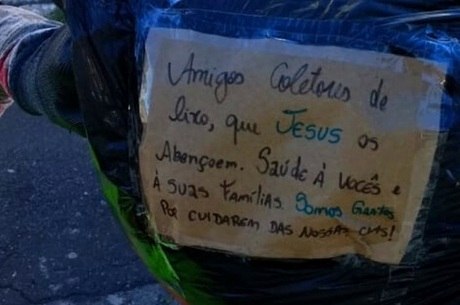 Amigos Coletores de
lixo, que JESUS os
Abençoem. Saúde À Vocês e
À suas Famílias. Somos Gratos
Por CUIDAREM DAS NOSSAS CMS!